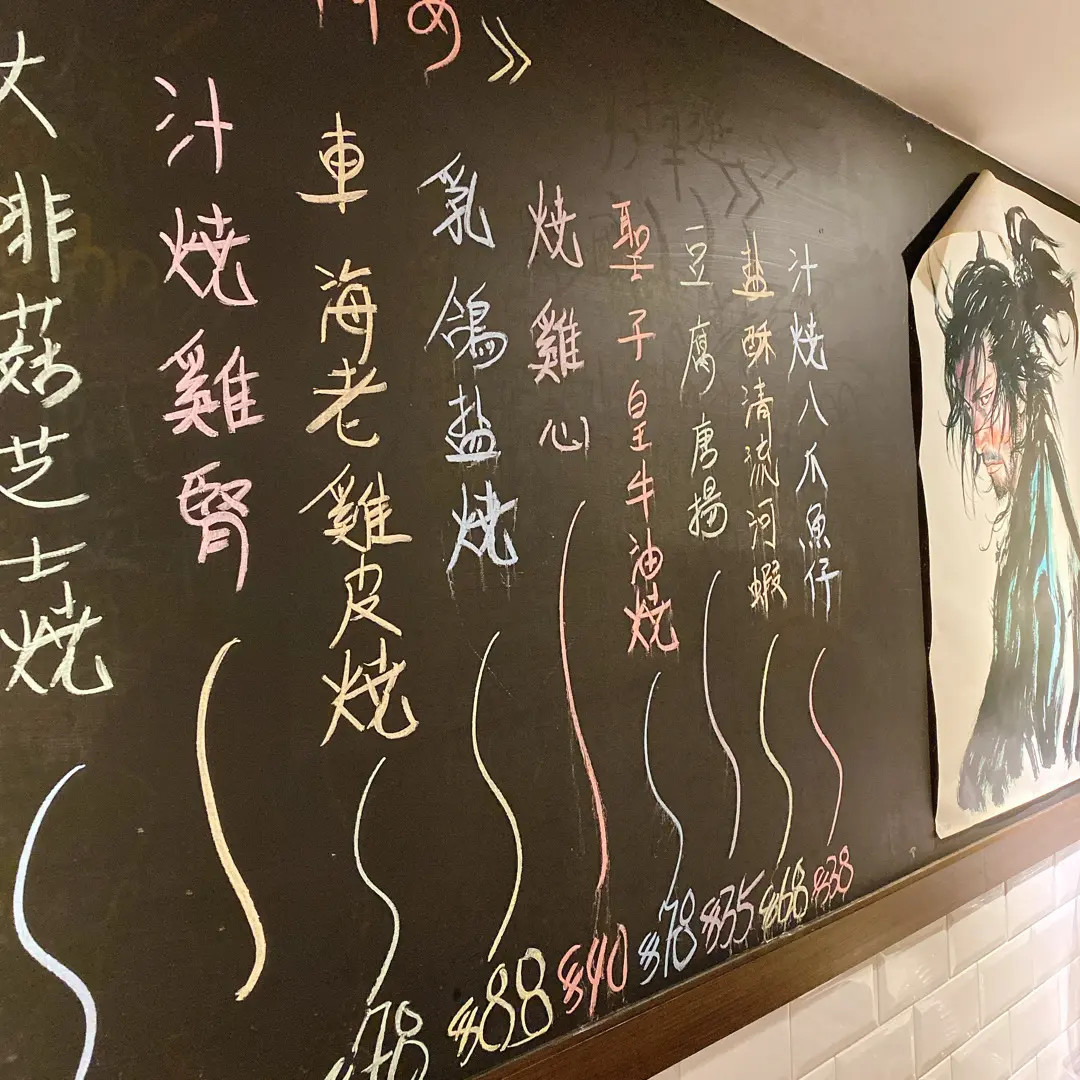 め》
汁焼八爪魚仔 $38
盐酥清流河蝦 $68
豆腐唐揚 $35
聖子皇牛油焼 $78
焼雞心 $40
乳鴿盐焼 $88
車海老雞皮焼 $78
汁焼雞腎
大啡菇芝士焼